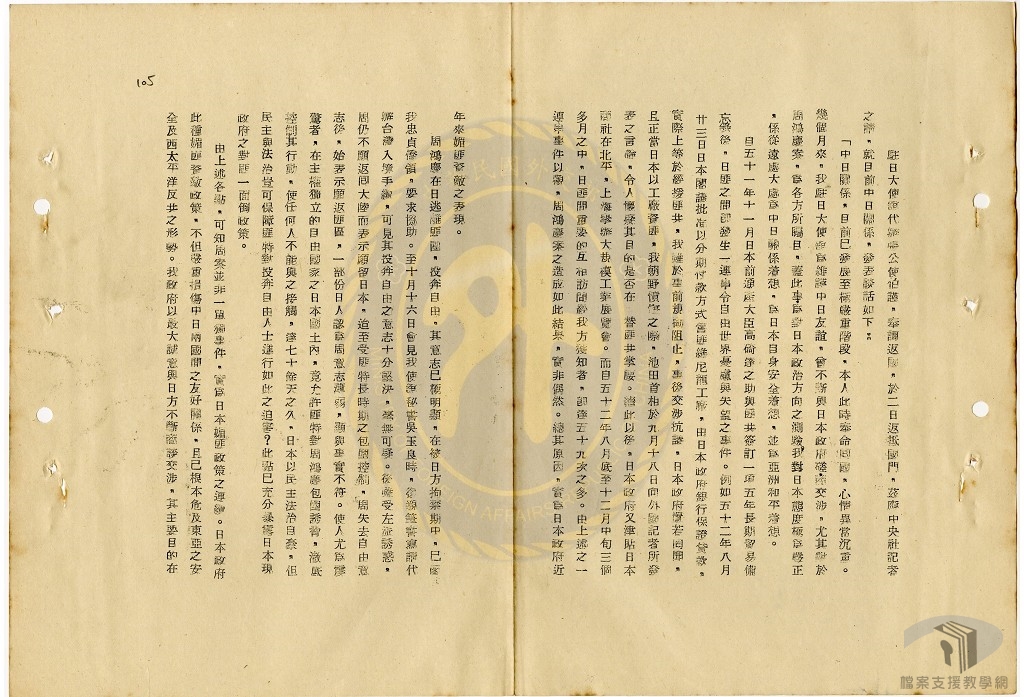 駐日大使館代辦張公使伯謹,奉調返國,於二日返抵國門,茲應中央社記者
之請,就目前中日關係,發表談話如下:
「中日關係,目前已發展至極嚴重階段,本人此時奉命回國,心情異常沉重。
幾個月來,我駐日大使館為維護中日友誼,曾不斷與日本政府磋商交涉,尤其對於
周鴻慶案,為各方所矚目,蓋此事為對日本政治方向之測驗,我對日本態度極為嚴正
,係從遠處大處為中日關係著想,為日本自身安全著想,並為亞洲和平著想。
自五十一年十一月日本前通產大臣高碕等之助與匪共簽訂一項五年長期貿易備
忘錄後,日匪之間即發生一連串令自由世界憂慮與失望之事件。例如五十二年八月
廿三日日本閣議批准以分期付款方式售匪維尼龍工廠,由日本政府銀行保證貸款,
實際上等於經援匪共,我雖於事前規勸阻止,事後交涉抗議,日本政府置若罔聞。
且正當日本以工廠資匪,我朝野憤慨之際,池田首相於九月十八日向外國記者所發
表之言論,令人懷疑其目的是否在 替匪共掌腰。從此以後,日本政府又津貼日本
商社在北平,上海舉辦大裁模工業展覽會。而自五十二年八月底至十二月中旬三個
多月之中,日匪間重要的互相訪問經我方獲知者,即達五十九次之多。由上述之一
連串事件以觀,周鴻慶案之造成如此結果,實非偶然。總其原因,實為日本政府近
年來媚匪資敵之表現。
周鴻慶在日逃匪匪團,投奔自由,其意志已極明顯,在彼日方拘禁期中,已函
我忠貞僑領,要求協助。至十月十六日會見我使館秘書吳玉良時,復親筆書寫請代
辦台灣入學手續,可見其投奔自由之意志十分堅決,毫無可爭。後雖受左派誘惑,
周仍不願返回大陸而表示願留日本,迨至受匪特長時期之包圍控制,周失去自由意
志後,始表示願返匪區,一部份日人認為周意志薄弱,顯與事實不符。使人尤為驚
驚者,在主權獨立的自由國家之日本國土內,竟允許匪特對周鴻慶包圍誘脅,澈底
控制其行動,使任何人不能與之接觸,達七十餘天之久,日本以民主法治自豪,但
民主與法治豈可保障匪特對投奔自由人士進行如此之迫害?此點已充分暴露日本現
政府之對匪一面倒政策。
由上述各點,可知周案並非一單獨事件,實為日本媚匪政策之運籌。日本政府
此種媚匪資敵政策,不但嚴重損傷中日兩國間之友好關係,且已根本危及東亞之安
全及西太平洋反共之形勢。我政府以最大誠意與日方不斷商談交涉,其主要目的在
105
檔案支援教學網